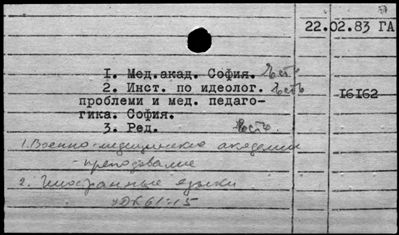 22.02.83 ГА
1. Мед.акад. София. Есть
2. Инст. по идеолог. Есть
16162
проблеми и мед. педаго-
гика. София.
3. Ред. Есть
1. Военно-медицинские академии
- преподавание
2. Иностранные языки
УДК 61:15